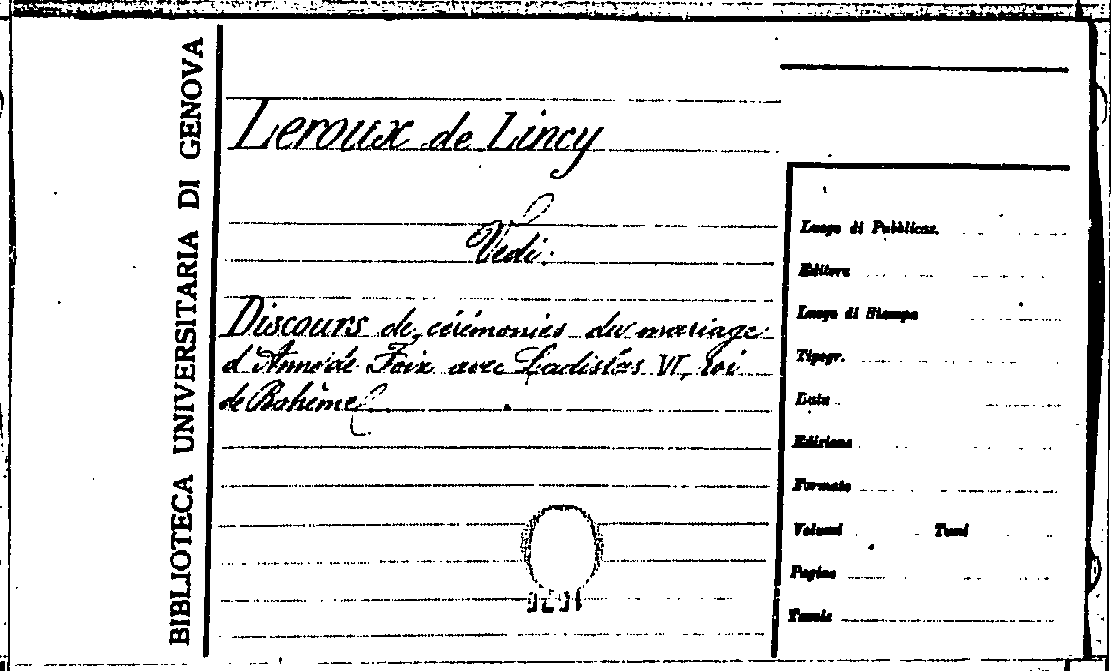 BIBLIOTECA UNIVERSITARIA DI GENOVA
Leroux de Lincy
Vedi:
Discours de, cérémonies du mariage
d'Anne de Foix avec Ladislas VI, roi
de Bohème
Luogo di Pubblicaz.
Editore
Luogo di Stampa
Tipogr.
Data
Edizione
Formato
Volumi Tomi
Pagine
Tavole